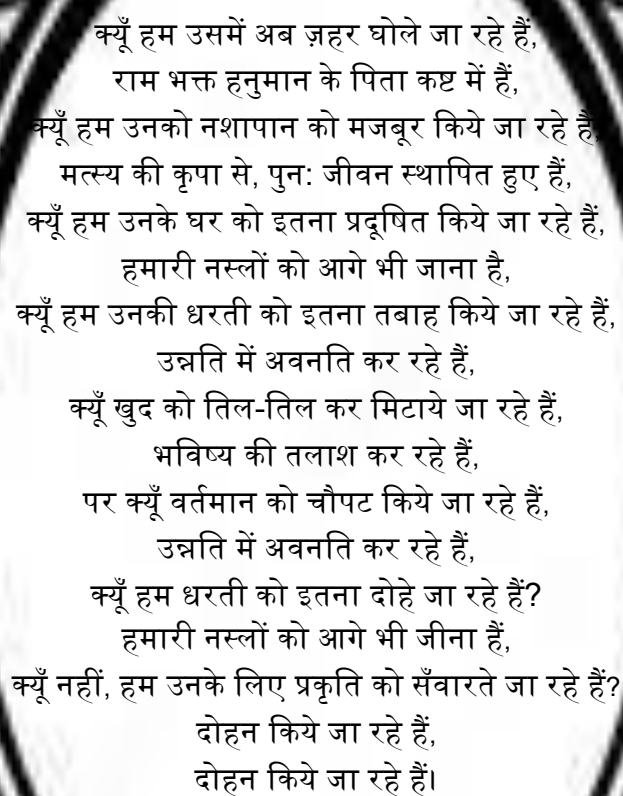 क्यूँ हम उसमें अब ज़हर घोले जा रहे हैं,
राम भक्त हनुमान के पिता कष्ट में हैं,
क्यूँ हम उनको नशापान को मजबूर किये जा रहे हैं,
मत्स्य की कृपा से, पुन: जीवन स्थापित हुए हैं,
क्यूँ हम उनके घर को इतना प्रदूषित किये जा रहे हैं,
हमारी नस्लों को आगे भी जाना है,
क्यूँ हम उनकी धरती को इतना तबाह किये जा रहे हैं,
उन्नति में अवनति कर रहे हैं,
क्यूँ खुद को तिल-तिल कर मिटाये जा रहे हैं,
भविष्य की तलाश कर रहे हैं,
पर क्यूँ वर्तमान को चौपट किये जा रहे हैं,
उन्नति में अवनति कर रहे हैं,
क्यूँ हम धरती को इतना दोहे जा रहे हैं?
हमारी नस्लों को आगे भी जीना हैं,
क्यूँ नहीं, हम उनके लिए प्रकृति को सँवारते जा रहे हैं?
दोहन किये जा रहे हैं,
दोहन किये जा रहे हैं।